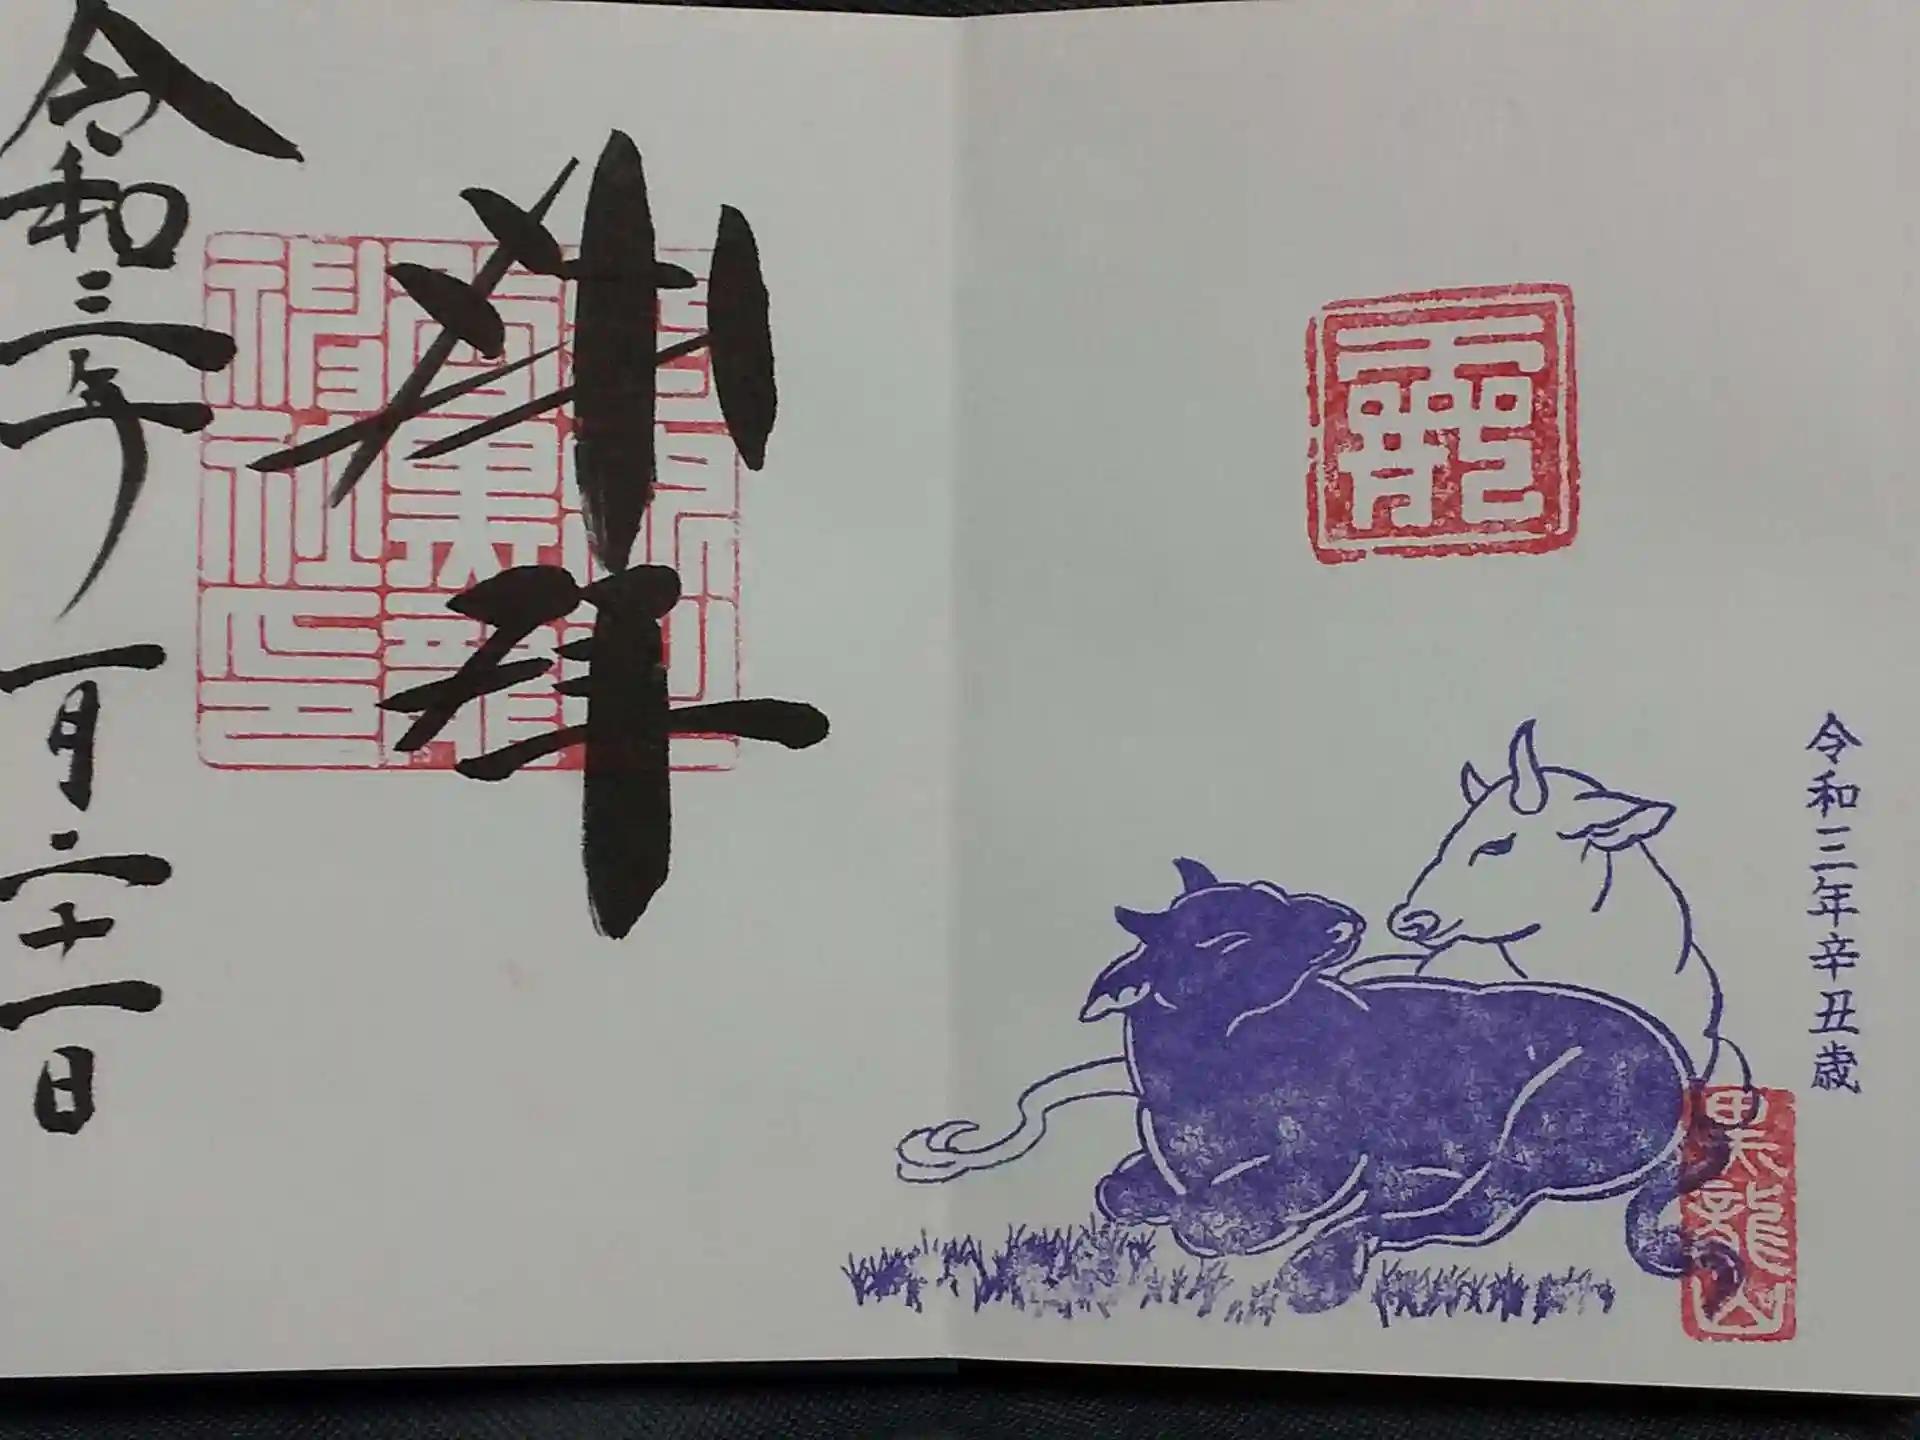 龗
令和三年辛丑歳
奉拝
令和三年一月二十一日